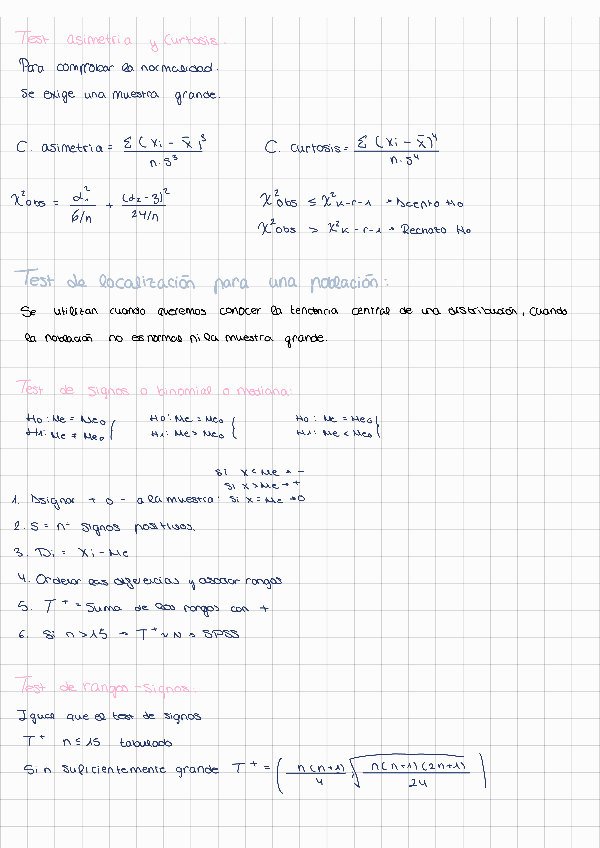 Test asimetria y Curtosis.
Para comprobar la normalidad.
Se exige una muestra grande.
C. asimetria = Σ(xi - x̄)³ / n·s³
C. curtosis = Σ(xi - x̄)⁴ / n·s⁴
χ²obs = α₁² / 6/n + (α₂ - 3)² / 24/n
χ²obs ≤ χ²k-r-1 → Acepto Ho
χ²obs > χ²k-r-1 → Rechazo Ho
Test de localización para una población:
Se utilizan cuando queremos conocer la tendencia central de una distribución, cuando
la población no es normal ni la muestra grande.
Test de signos o binomial o mediana:
Ho: Me = Meo
H1: Me ≠ Meo
Ho: Me = Meo
H1: Me > Meo
Ho: Me = Meo
H1: Me < Meo
Si x < Me → -
Si x > Me → +
1. Asignar + o - a la muestra: Si x = Me → 0
2. S = nº signos positivos.
3. Di = xi - Me
4. Ordenar las diferencias y asociar rangos
5. T⁺ = Suma de los rangos con +
6. Si n > 15 → T⁺ ~ N → SPSS
Test de rangos - signos:
Igual que el test de signos
T⁺ n ≤ 15 tabulado
Si n suficientemente grande T⁺ = ( n(n+1) / 4 √ n(n+1)(2n+1) / 24 )